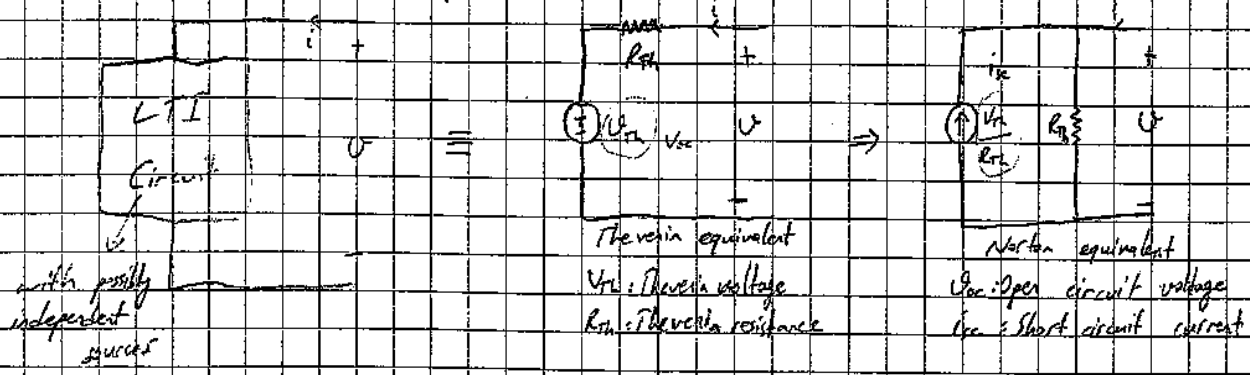 i
+
LTI
Circuit
v
with possibly
independent
sources
≡
i
R_Th
+
V_Th
V_oc
v
-
Thevenin equivalent
V_Th : Thevenin voltage
R_Th : Thevenin resistance
⇒
+
i_sc
V_Th
R_Th
R_Th
v
-
Norton equivalent
V_oc : Open circuit voltage
i_sc : Short circuit current